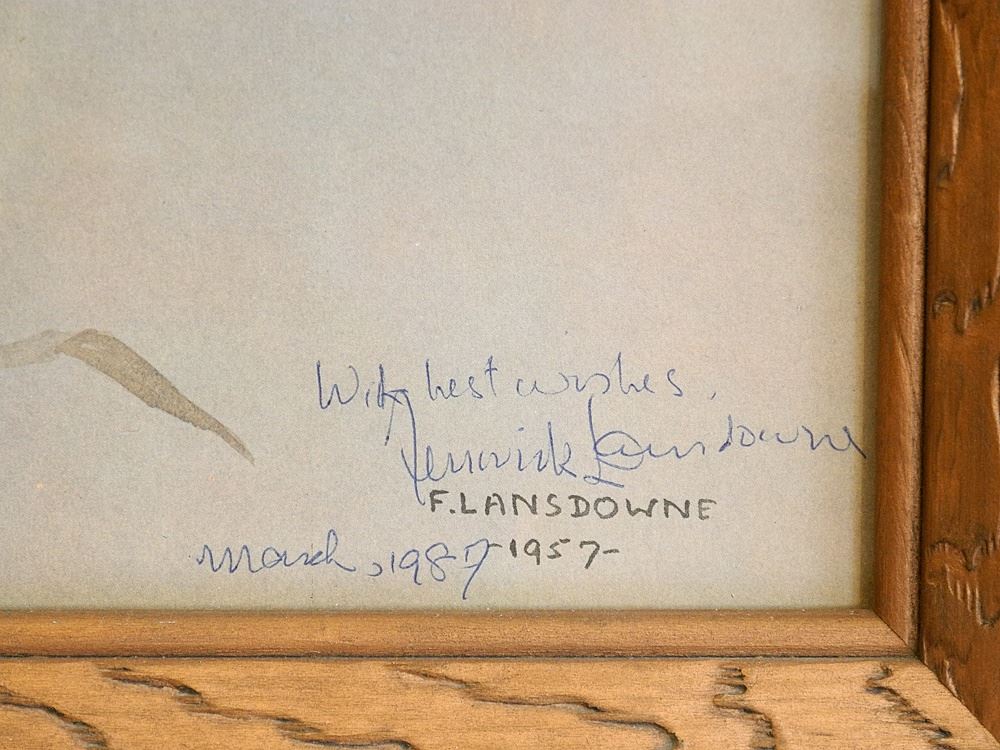 With best wishes,
Fenwick Lansdowne
F. LANSDOWNE
March, 1987
1957-